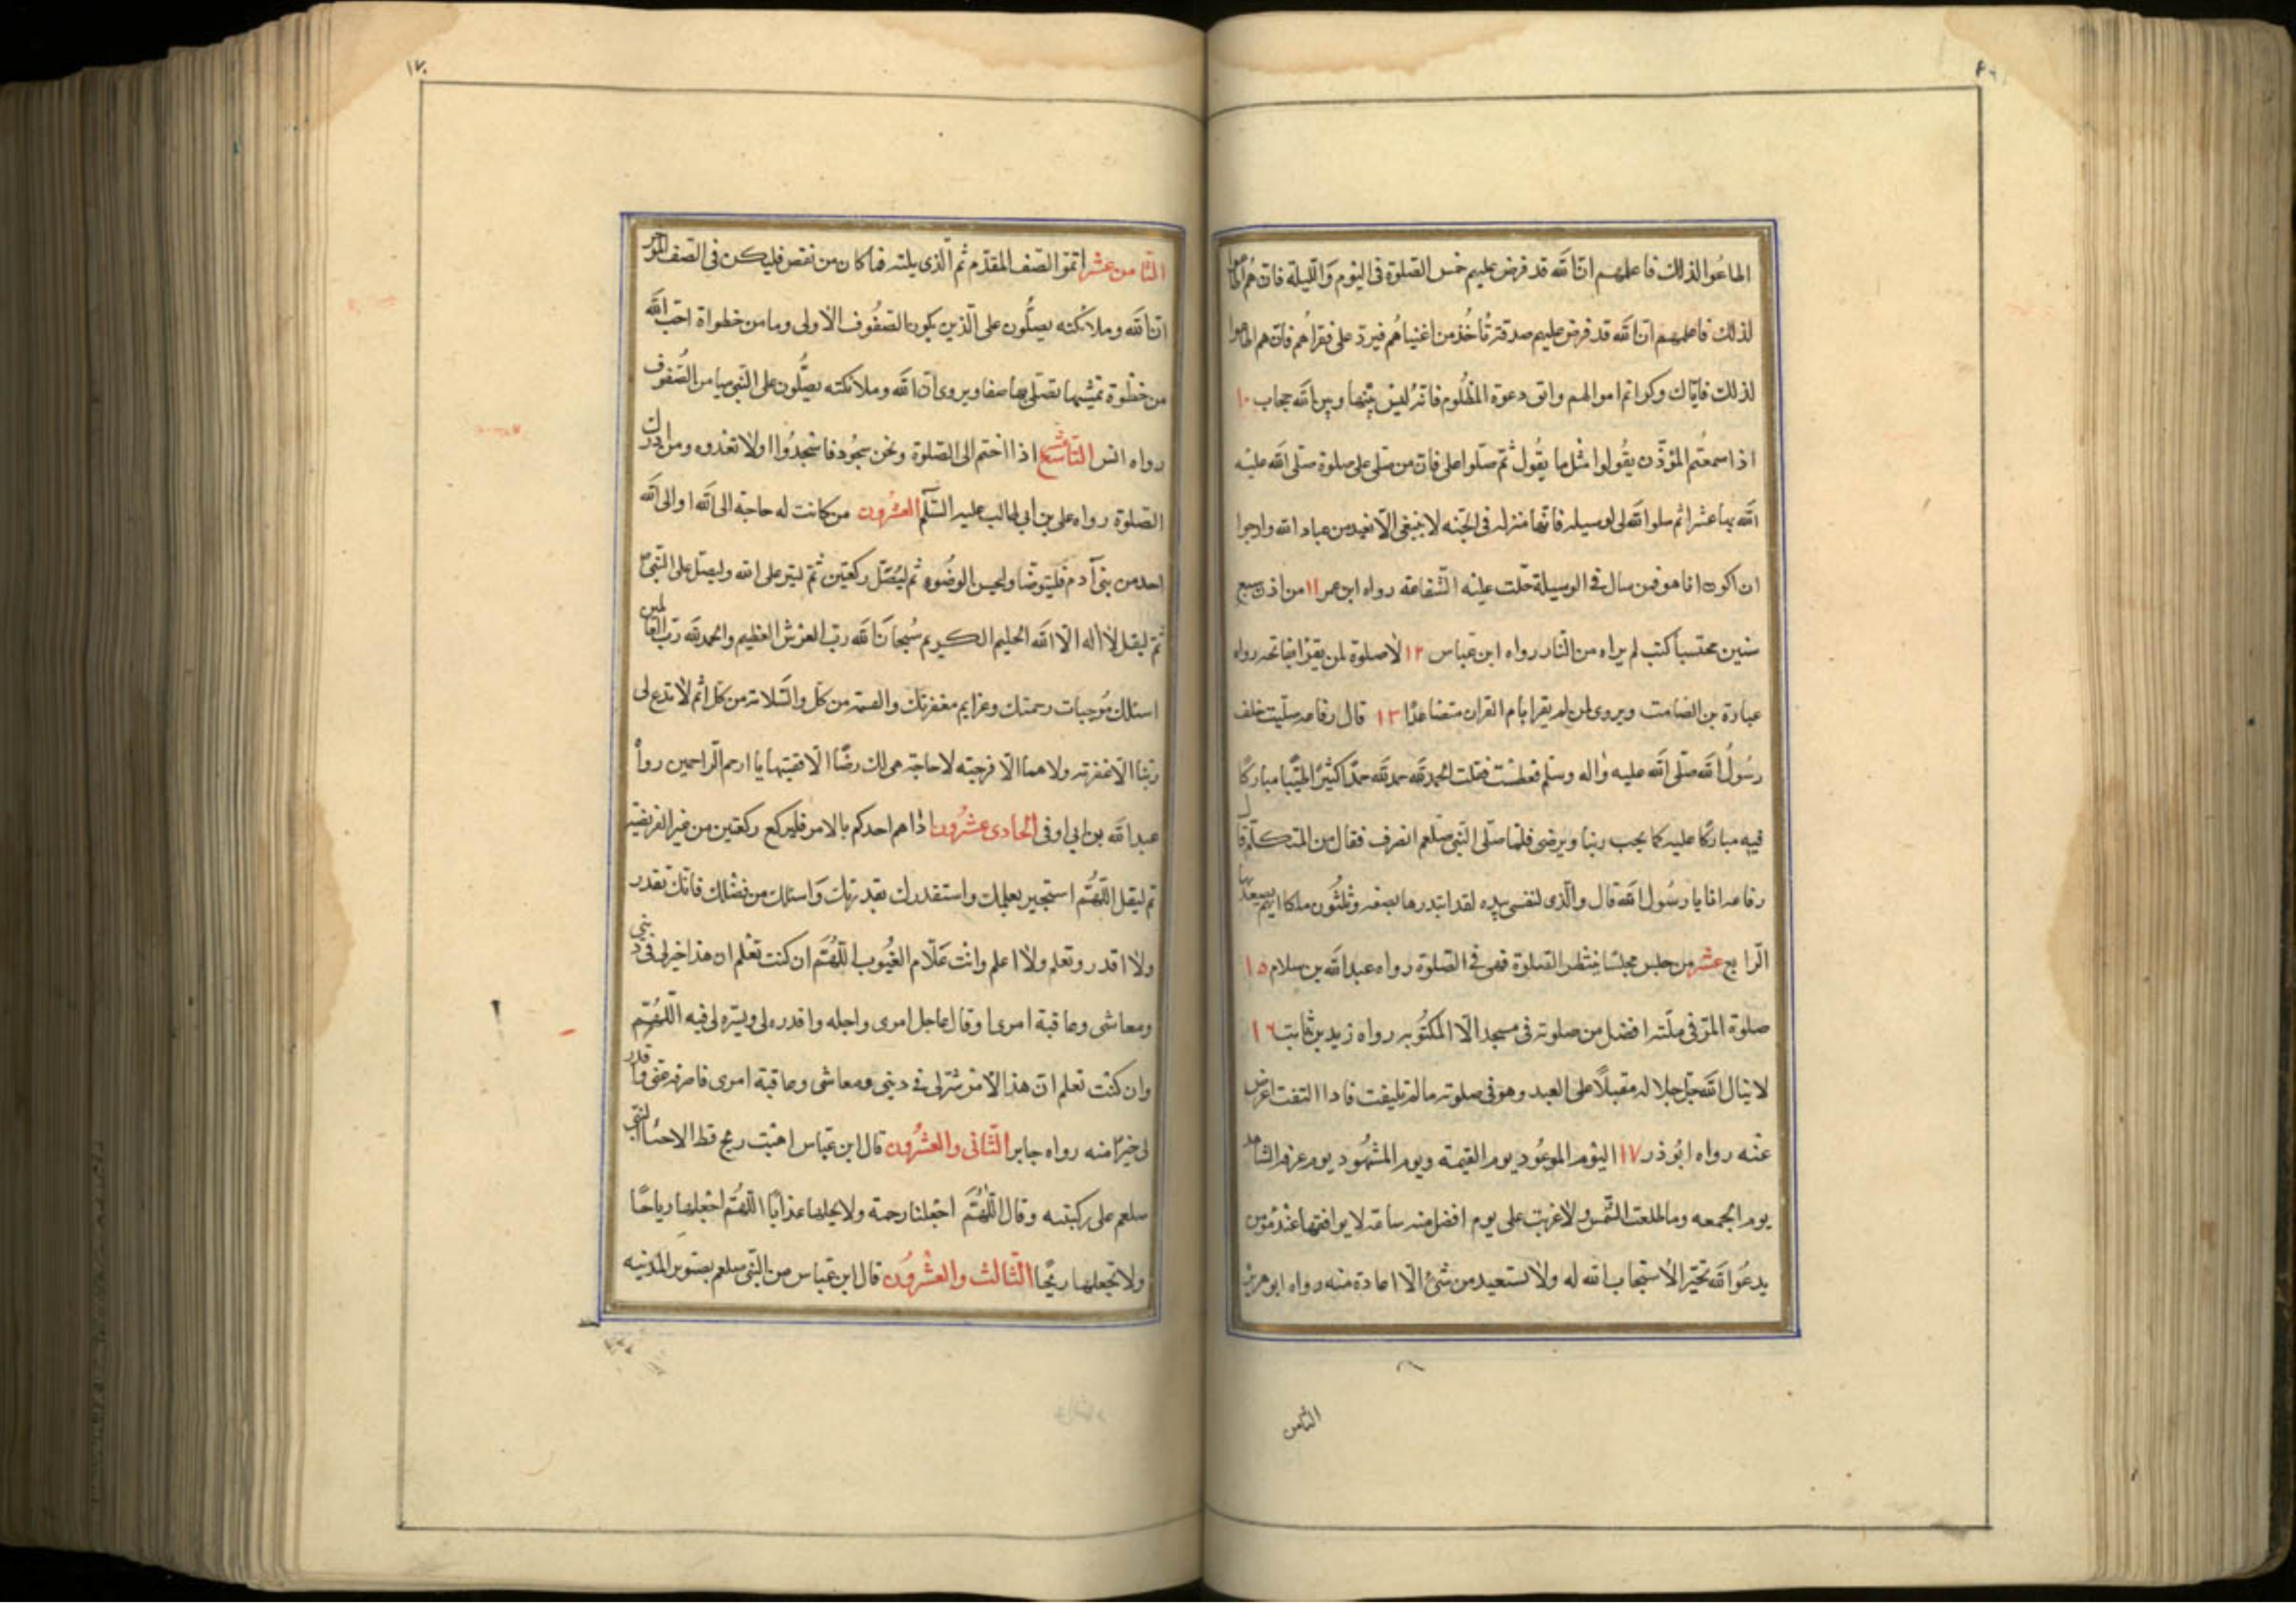 اطاعوا لذلك فاعلمهم ان الله قد فرض عليهم خمس الصلوة فى اليوم والليلة فان هم اطاعوا
لذلك فاعلمهم ان الله قد فرض عليهم صدقة تأخذ من اغنياهم فيرد على فقراهم فان هم اطاعوا
لذلك فاياك وكرائم اموالهم واتق دعوة المظلوم فانه ليس بينها وبين الله حجاب ١٠
اذا سمعتم المؤذن يقولوا مثل ما يقول ثم صلوا على فان من صلى على صلوة صلى الله عليه
الله بها عشرا ثم سلوا الله لى لوسيله فانها منزله فى الجنه لا ينبغى الا لعبد من عباد الله وارجوا
ان اكون انا هو فمن سال فى الوسيلة حلت عليه الشفاعة رواه ابن عمر ١١ من اذن سبع
سنين محتسبا كتب لم براه من النار رواه ابن عباس ١٢ لا صلوة لمن يقرا بفاتحه رواه
عبادة بن الصامت ويروى لمن لم يقرا بام القران متصاعدا ١٣ قال رفاعه صليت خلف
رسول الله صلى الله عليه واله وسلم فعطست فقلت الحمد لله حمد لله حمدا كثيرا طيبا مباركا
فيه مباركا عليه كما يحب ربنا ويرضى فلما صلى النبى صلعم انصرف فقال من المتكلم قال
رفاعه انا يا رسول الله قال والذى نفسى بيده لقد ابتدرها بضعه وثلثون ملكا ايهم يصعد بها
الرابع عشر من جلس مجلسا ينتظر الصلوة فهى فى الصلوة رواه عبد الله بن سلام ١٥
صلوة المرء فى ملته افضل من صلوته فى مسجد الا المكتوبه رواه زيد بن ثابت ١٦
لا ينال الله جل جلاله مقبلا على العبد وهو فى صلوته ما لم يليفت فاداا التفت اعرض
عنه رواه ابوذر ١٧ اليوم الموعود يوم القيمة ويوم المشهود يوم عرفه الشاهد
يوم الجمعه وما طلعت الشمس ولا غربت على يوم افضل منه ساعة لا يوافقها عند مؤمن
يدعوا الله بخير الا استجاب الله له ولا تستعيد من شئ الا اعاده منه رواه ابو هريرة
الثامن
١٧٠
الثامن عشر اتموا الصف المقدم ثم الذى يليه فما كان من نقص فليكن فى الصف المؤخر
ان الله وملائكته يصلون على الذين يكون الصفوف الاولى وما من خطواة احب الله
من خطوة تمشيها تصلى بها صفا ويروى ان الله وملائكته يصلون على النبى ميامن الصفوف
رواه انس التاسع عشر اذا اختم الى الصلوة ونحن سجود فاسجدوا ولا تعدوه ومن ادرك
الصلوة رواه على بن ابى طالب عليه السلم العشرون من كانت له حاجة الى الله او الى الله
احد من بنى آدم فليتوضا وليحسن الوضوء ثم ليصل ركعتين ثم ليثر على الله وليصل على النبى
ثم ليقل لا اله الا الله الحليم الكريم سبحان الله رب العرش العظيم والحمد لله رب العالمين
اسئلك موجبات رحمتك وعزايم مغفرتك والعصمة من كل والسلامة من كل اثم لا تدع لى
ربنا الا غفرته ولا هما الا فرجته لا حاجة هى لك رضا الا قضيتها يا ارحم الراحمين رواه
عبد الله بن ابى اوفى الحادى عشرون اذا هم احدكم بالامر فليركع ركعتين من غير الفريضة
ثم ليقل اللهم استجير بعلمك واستقدرك بقدرتك واسئلك من فضلك فانك تقدر
ولا اقدر وتعلم ولا اعلم وانت علام الغيوب اللهم ان كنت تعلم ان هذا خير لى فى دينى
ومعاشى وعاقبة امرى وقال عاجل امرى واجله واقدره لى ويسره لى فيه اللهم
وان كنت تعلم ان هذا الامر شر لى فى دينى ومعاشى وعاقبة امرى فاصرفه عنى واقدر
لى خيرا منه رواه جابر الثانى والعشرون قال ابن عباس اهبت ريح قط الا حثا النبى
صلعم على ركبتيه وقال اللهم اجعلنا رحمة ولا يجلها عذابا اللهم اجعلها رياحا
ولا تجعلها ريحا الثالث والعشرون قال ابن عباس من النبى صلعم بصنوبر المدنيه